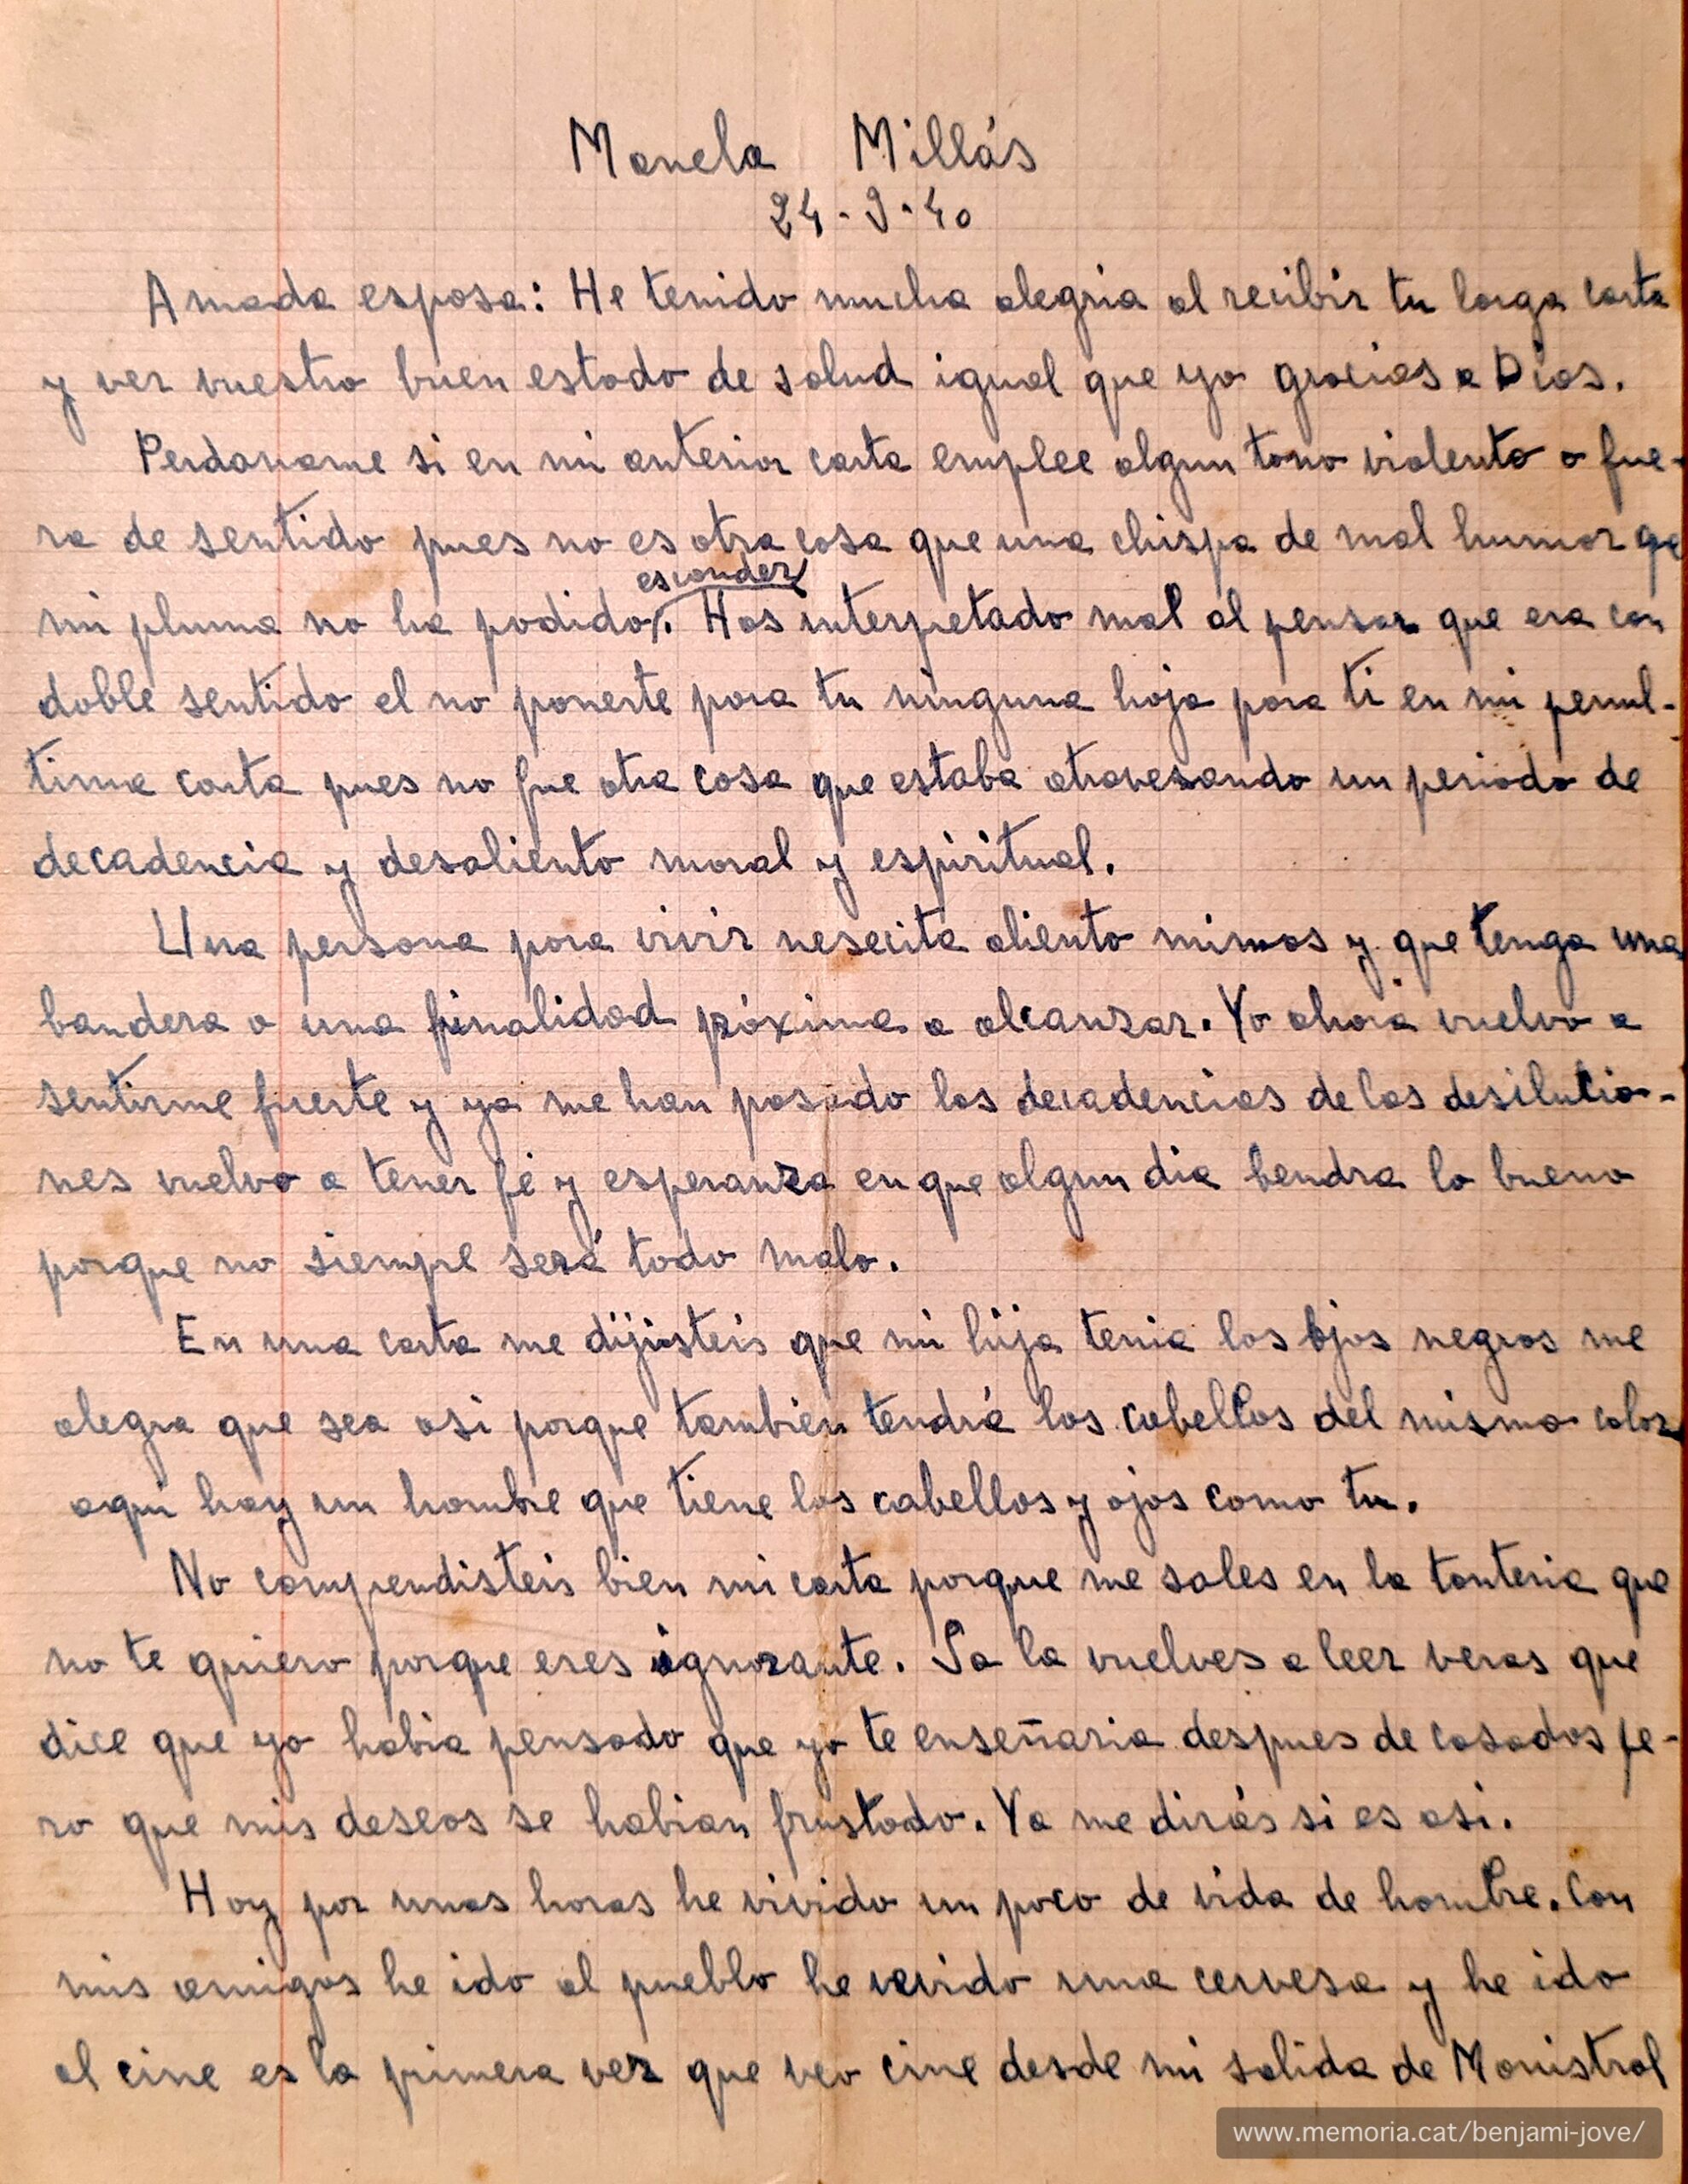 Manela Millás
24-9-40
Amada esposa: He tenido mucha alegria al recibir tu larga carta
y ver vuestro buen estado de salud igual que yo gracias a Dios.
Perdoname si en mi anterior carta emplee algun tono violento o fue-
ra de sentido pues no es otra cosa que una chispa de mal humor qe
esconder
mi pluma no ha podido. Has interpetado mal al pensar que era con
doble sentido el no ponerte para tu ninguna hoja para ti en mi penul-
tima carta pues no fue otra cosa que estaba atravesando un periodo de
decadencia y desaliento moral y espiritual.
Una persona para vivir nesecita aliento mimos y que tenga una
bandera o una finalidad próxima a alcanzar. Yo ahora vuelvo a
sentirme fuerte y ya me han pasado las decadencias de las desilucio-
nes vuelvo a tener fé y esperanza en que algun dia bendra lo bueno
porque no siempre será todo malo.
En una carta me dijisteis que mi hija tenia los ojos negros me
alegra que sea asi porque tambien tendrá los cabellos del mismo color
aqui hay un hombre que tiene los cabellos y ojos como tu.
No compendisteis bien mi carta porque me sales en la tonteria que
no te quiero porque eres ignorante. Sa la vuelves a leer veras que
dice que yo habia pensado que yo te enseñaria despues de casados pe-
ro que mis deseos se habian frustado. Ya me dirás si es asi.
Hoy por unas horas he vivido un poco de vida de hombre. Con
mis amigos he ido al pueblo he vevido una cervesa y he ido
al cine es la primera vez que veo cine desde mi salida de Monistrol
www.memoria.cat/benjami-jove/